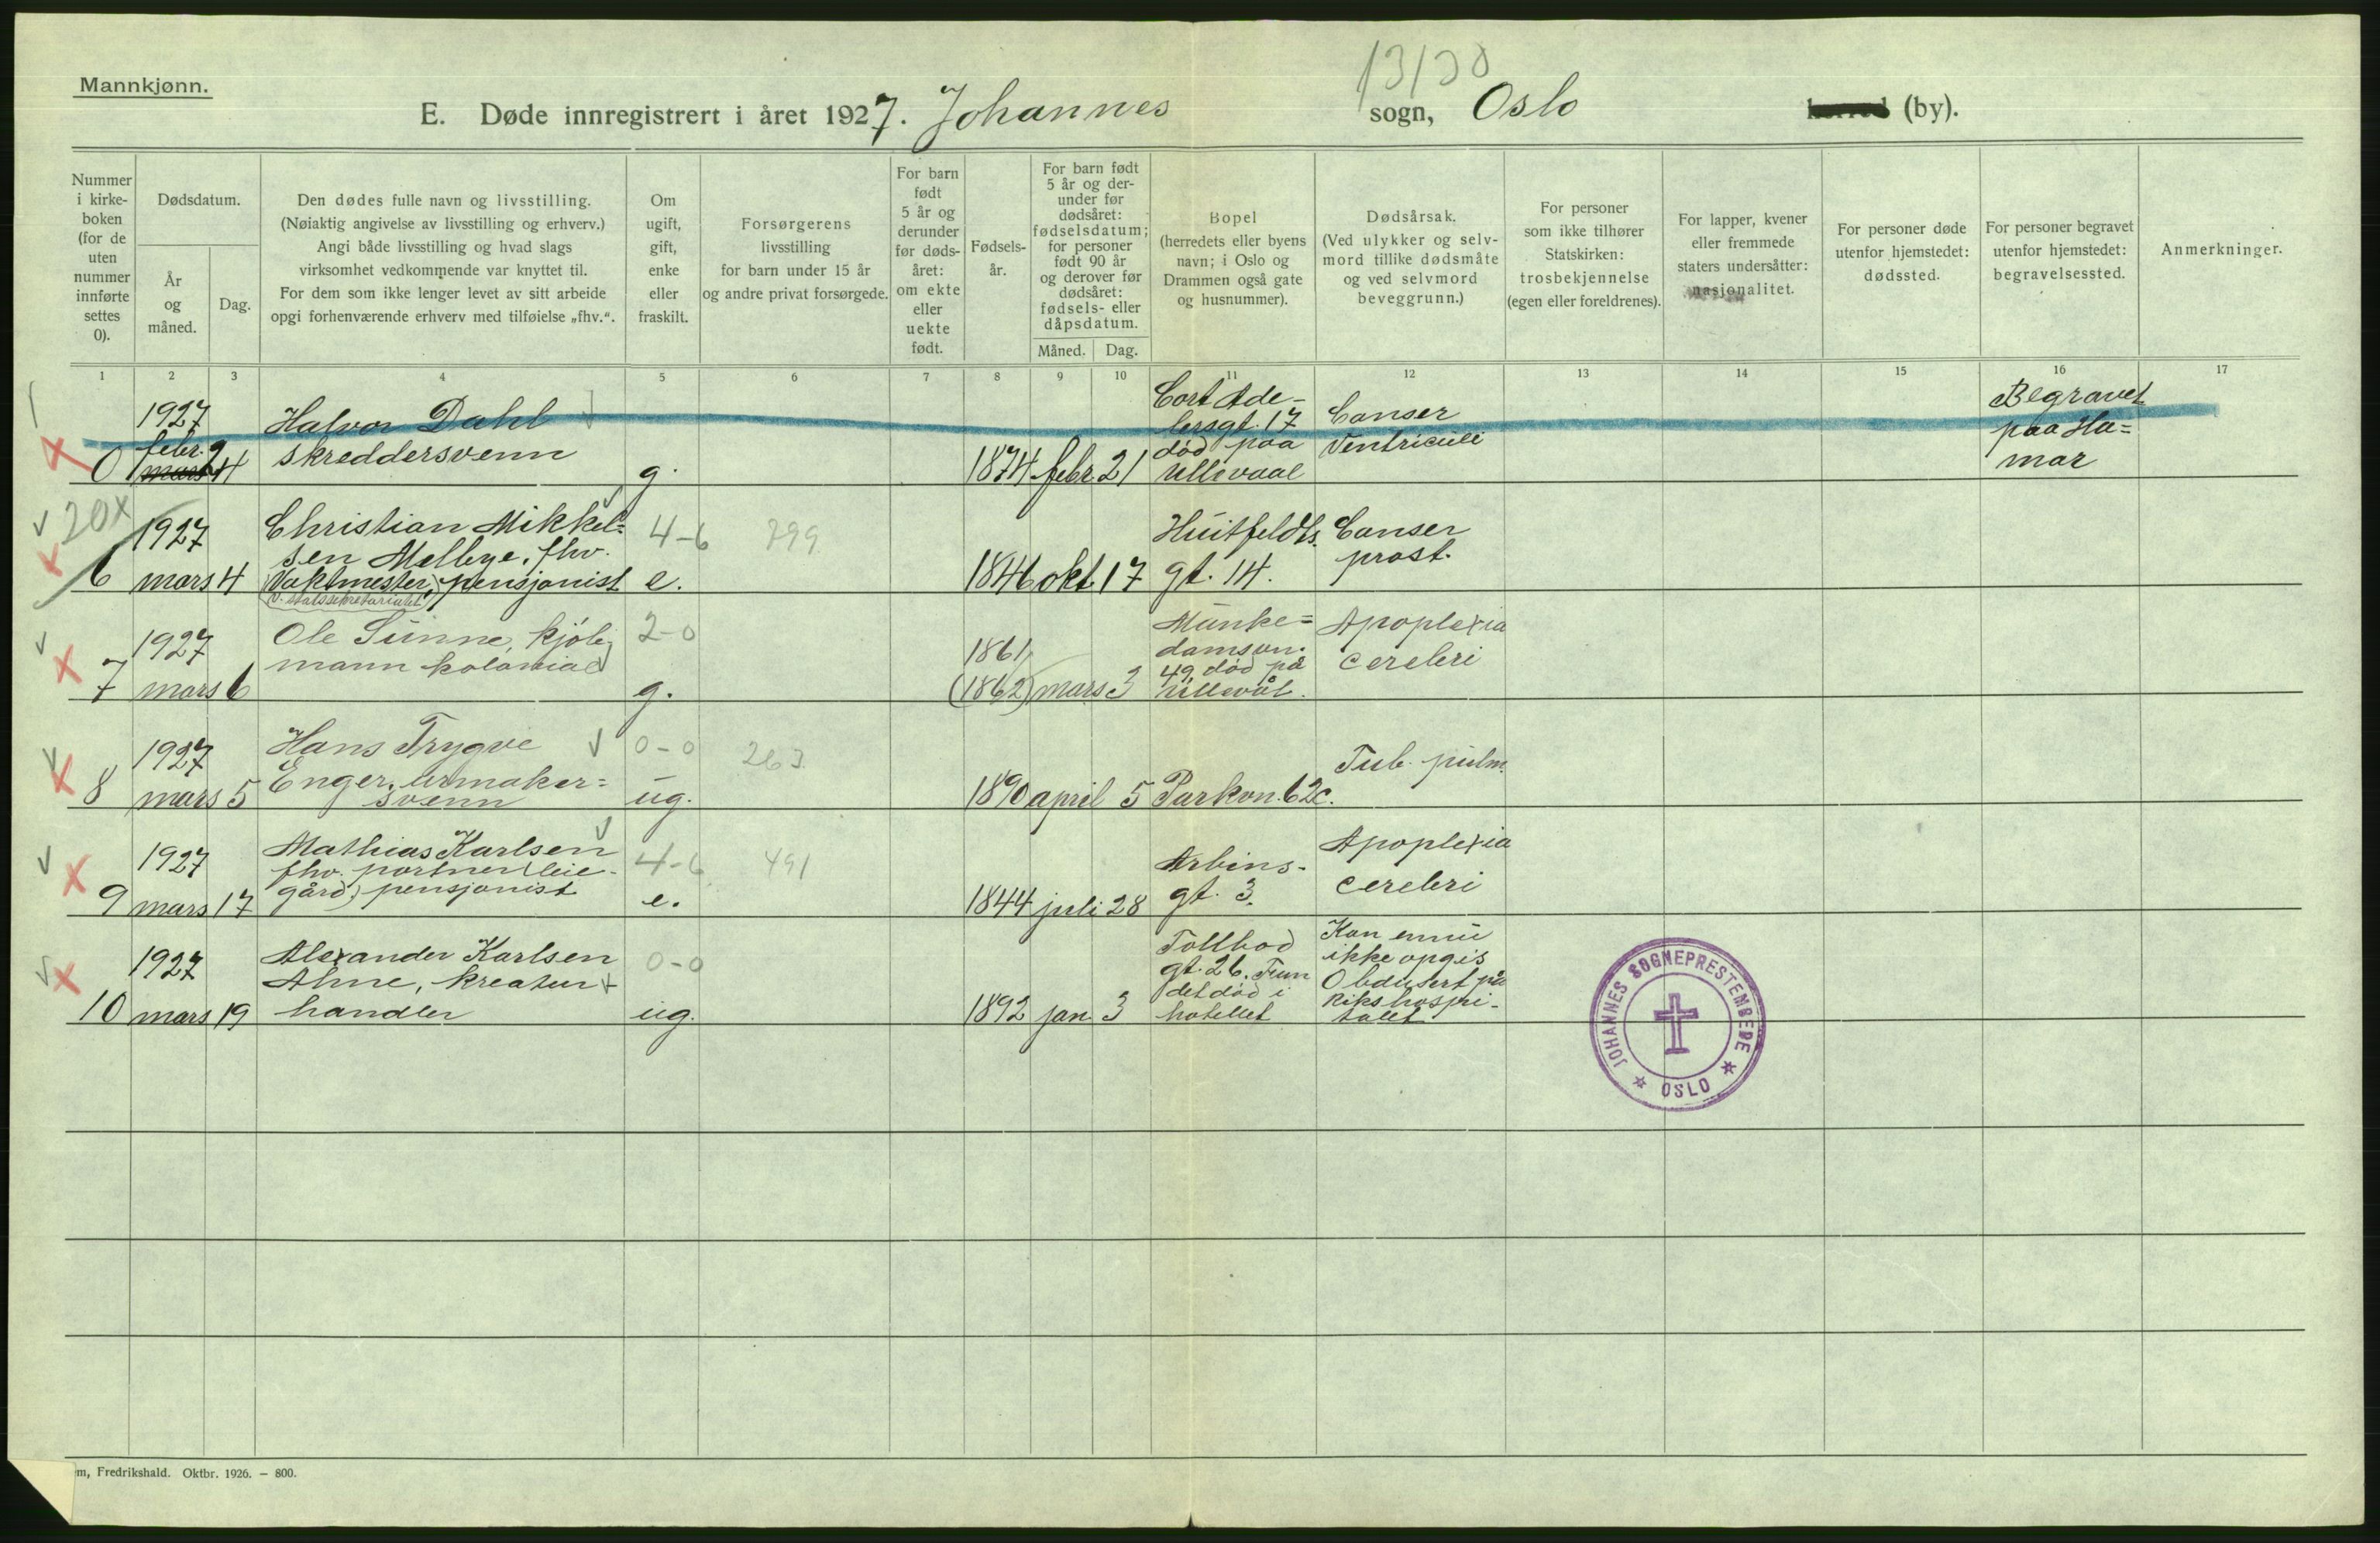 Mannkjønn.
13/38
E. Døde innregistrert i året 1927. Johannes sogn, Oslo herred (by).
Nummer i kirke-boken (for de uten nummer innførte settes 0).
Dødsdatum.
År og måned.
Dag.
Den dødes fulle navn og livsstilling.
(Nøiaktig angivelse av livsstilling og erhverv.)
Angi både livsstilling og hvad slags
virksomhet vedkommende var knyttet til.
For dem som ikke lenger levet av sitt arbeide
opgi forhenværende erhverv med tilføielse „fhv.“.
Om ugift, gift, enke eller fraskilt.
Forsørgerens
livsstilling
for barn under 15 år
og andre privat forsørgede.
For barn født 5 år og derunder før døds-året: om ekte eller uekte født.
Fødsels-år.
For barn født 5 år og der-under før dødsåret: fødselsdatum; for personer født 90 år og derover før dødsåret: fødsels- eller dåpsdatum.
Måned.
Dag.
Bopel
(herredets eller byens
navn; i Oslo og
Drammen også gate
og husnummer).
Dødsårsak.
(Ved ulykker og selv-
mord tillike dødsmåte
og ved selvmord
beveggrunn.)
For personer
som ikke tilhører
Statskirken:
trosbekjennelse
(egen eller foreldrenes).
For lapper, kvener
eller fremmede
staters undersåtter:
nasjonalitet.
For personer døde
utenfor hjemstedet:
dødssted.
For personer begravet
utenfor hjemstedet:
begravelsessted.
Anmerkninger.
1 2 3 4 5 6 7 8 9 10 11 12 13 14 15 16 17
0
1927
febr. 24
mars
Halvor Dahl
skreddersvenn
g.
1874 febr. 21
Cort Ade-
lersgt. 17
død paa
Ullevaal
Canser
Ventriculi
Begravet
paa Ha=
mar
20x
6
1927
mars 4
Christian Mikkel=
sen Melbye, fhv.
Vaktmester, pensjonist
(v. statssekretariatet)
4-6
e.
299
1846 okt. 17
Huitfeldts
gt. 14.
Canser
prost.
7
1927
mars 6
Ole Sunne, kjøb
mann kolonial
2-0
g.
1861
(1862) mars 3
Munke=
damsvn.
49, død på
Ullevål.
Apoplexia
cerebri
8
1927
mars 5
Hans Trygve
Enger, urmaker=
svenn
0-0
ug.
263
1890 april 5
Parkvn. 62c.
Tub. pulm.
9
1927
mars 17
Mathias Karlsen
fhv. portner (leie-
gård) pensjonist
4-6
e.
491
1844 juli 28
Arbins-
gt. 3.
Apoplexia
cerebri
10
1927
mars 19
Alexander Karlsen
Alme, kreatur
handler
0-0
ug.
1892 jan 3
Tollbod
gt. 26. Fun
det død i
hotellet
Kan ennu
ikke opgis
Obdusert på
Rikshospi-
talet
JOHANNES SOGNEPRESTEMBEDE
OSLO
em, Fredrikshald. Oktbr. 1926. – 800.